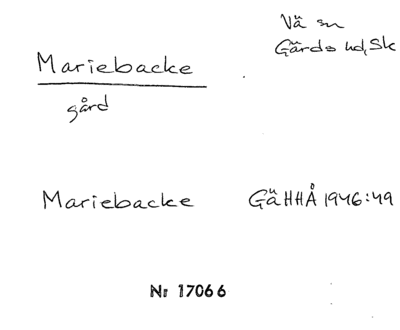 Vä sn
Gärds hd, Sk
Mariebacke
gård
Mariebacke GäHHÅ 1946:49
Nr 17066